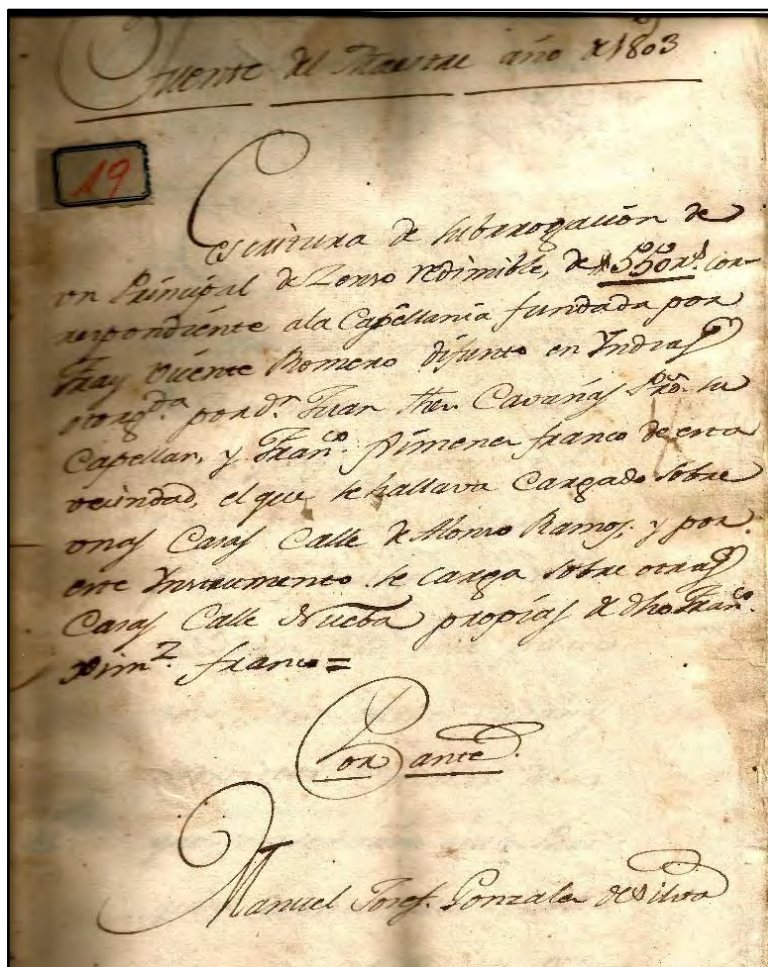 Fuente del Maestre año de 1803
19
Escritura de subrrogación de
un Principal de Zenso redimible, de 550 rs. cor-
respondiente ala Capellania fundada por
Fray Vicente Romero difunto en Yndias
otorgda por dn Juan Cavañas Pro. su
Capellan, y Franco. Ximenez franco de esta
vecindad, el que se hallava Cargado sobre
unas Casas Calle de Alonso Ramos, y por
este Ynstrumento se carga sobre otras
Casas Calle Nueba propias de dho Franco.
Ximz. franco =
Por ante
Manuel Josef. Gonzalez de Silva